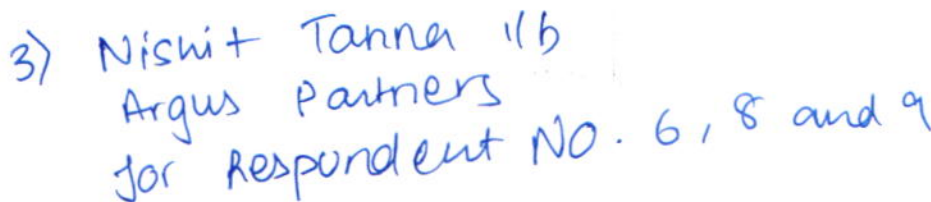 3) Nishit Tanna i/b
Argus Partners
for Respondent NO. 6, 8 and 9